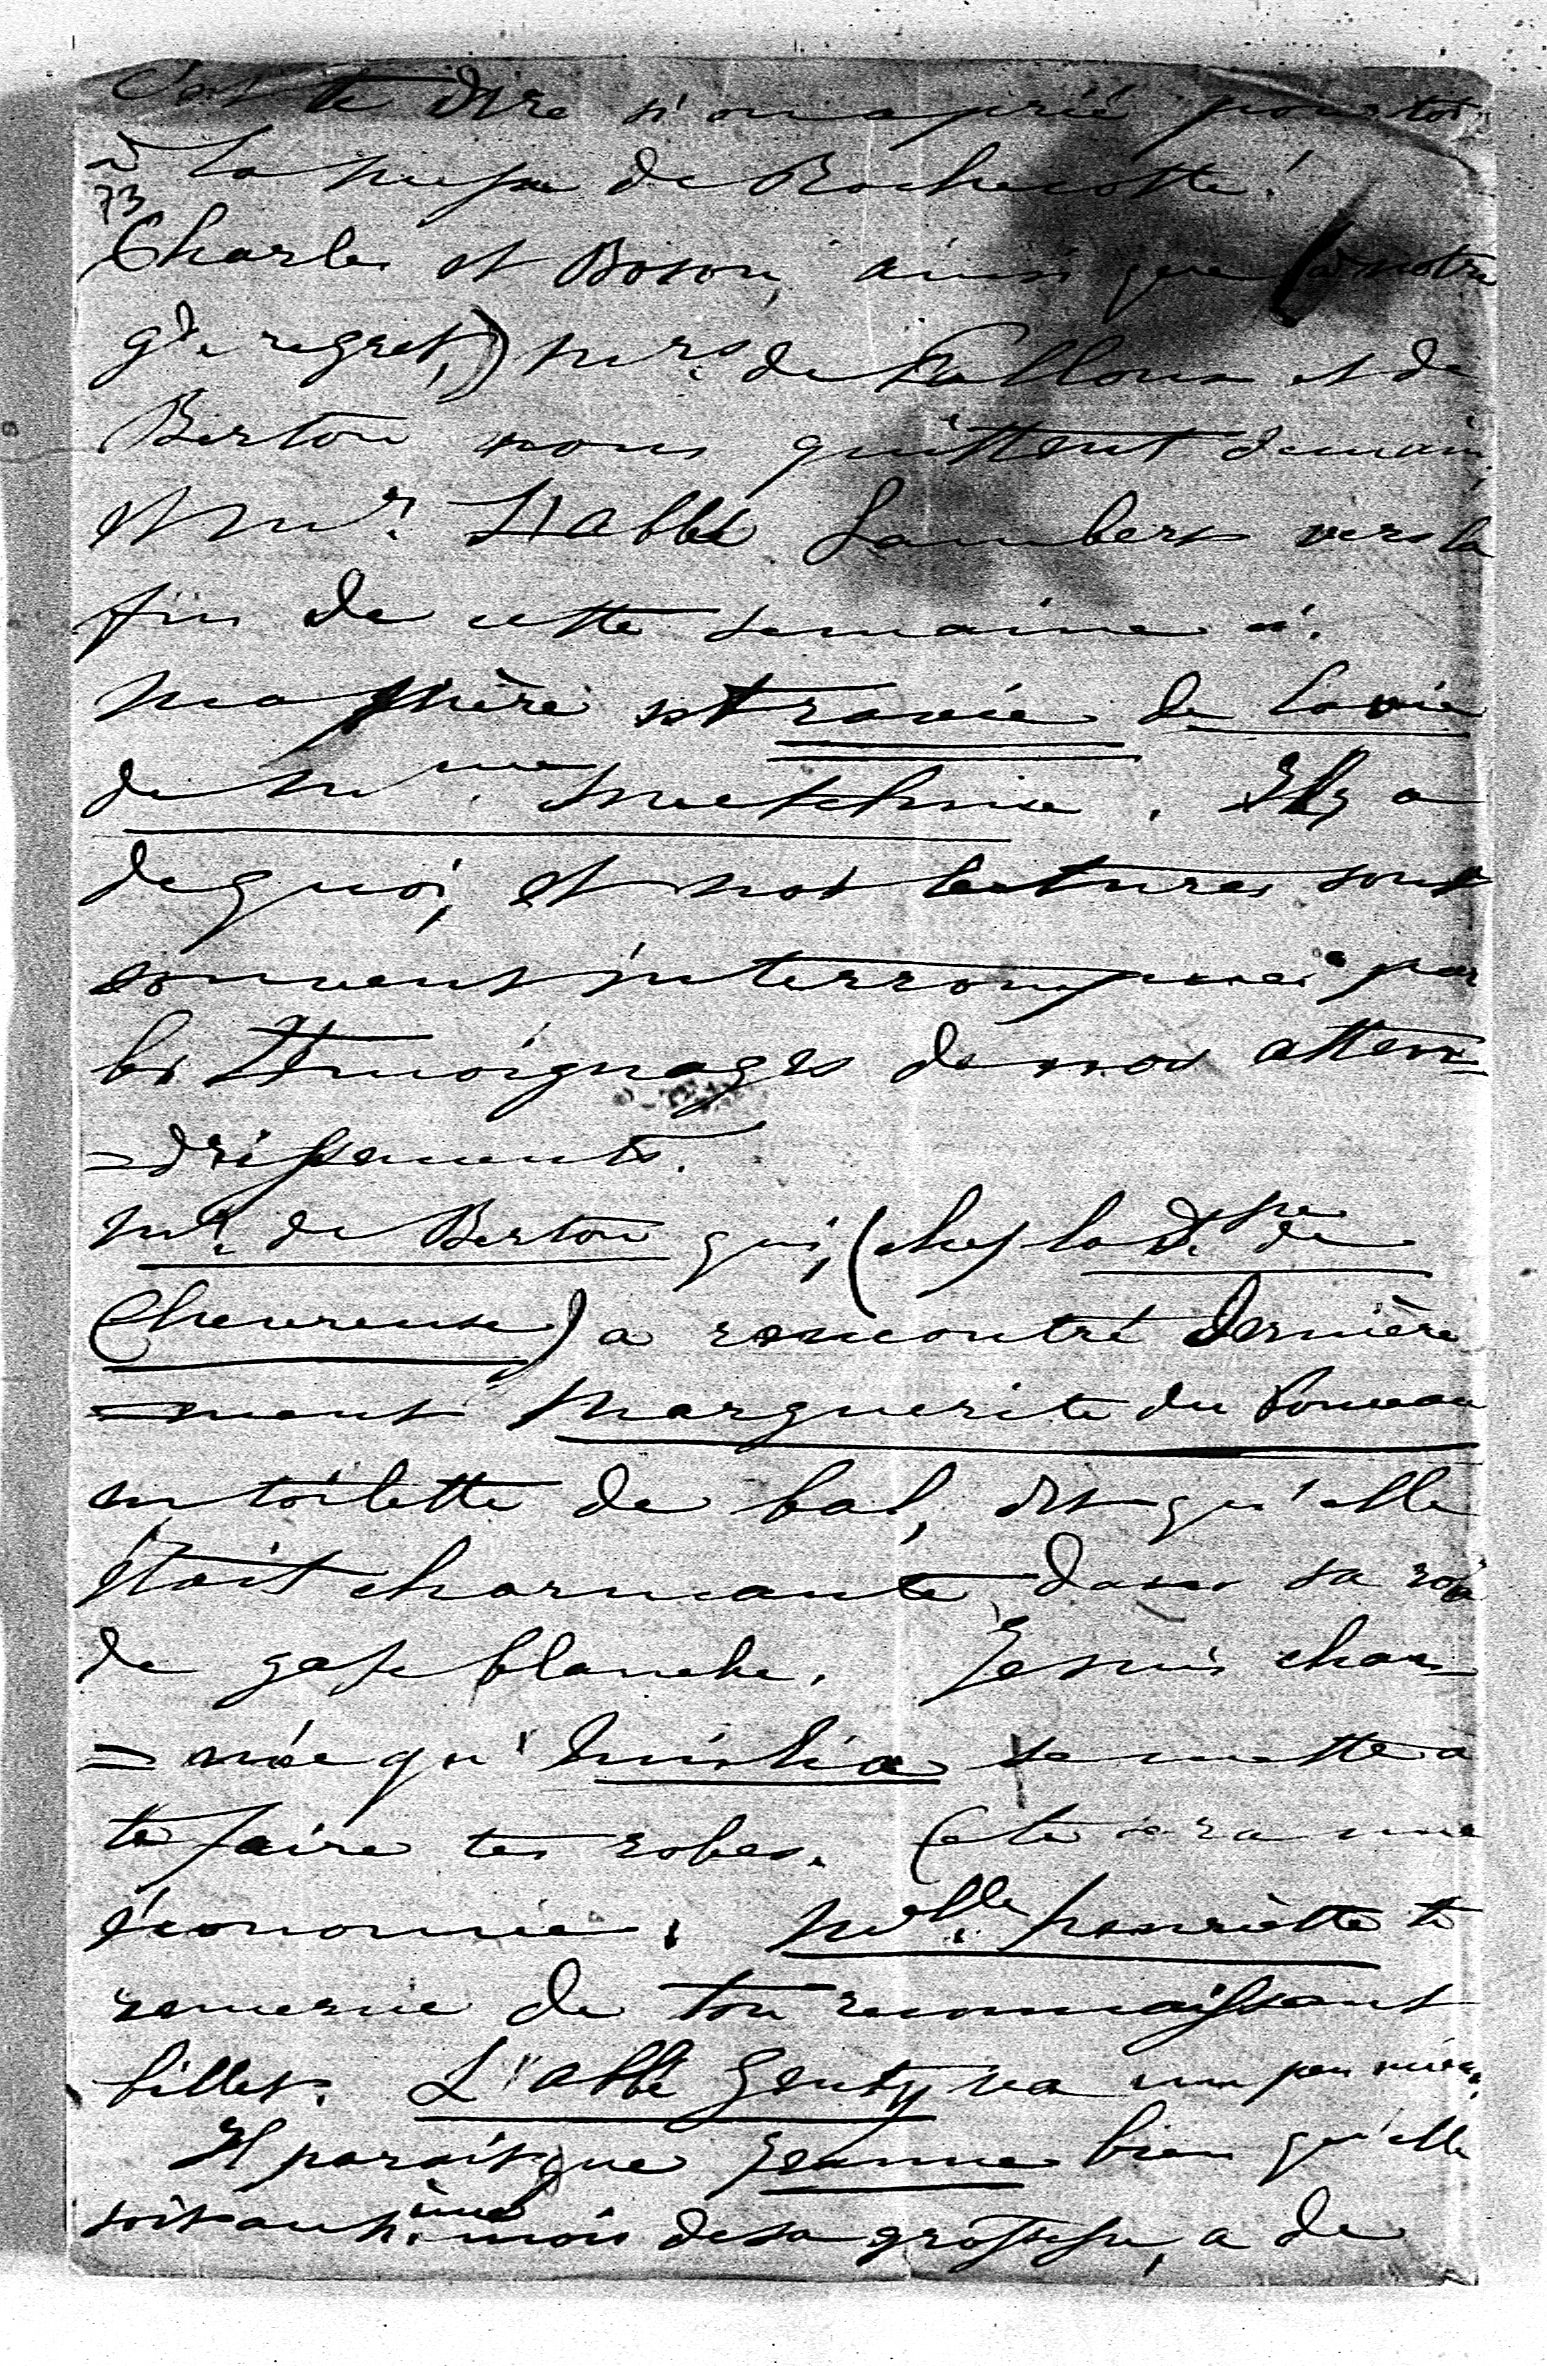 C'est te dire si on a prié pour toi
à la messe de Rochecotte!
73
Charles et Boson, ainsi que (à notre
gd regret,) mrs. de Falloux et de
Bertou nous quittent demain,
et mr. L'abbé Lambert vers la
fin de cette semaine ci.
ma mère est ravie de la vie
de mme. Swetchine. Il y a
de quoi, et nos lectures sont
souvent interrompues par
les témoignages de nos atten=
=drissements.
mr. de Bertou qui, (chez la dsse de
Chevreuse) a rencontré dernière
=ment Marguerite du Ponceau
en toilette de bal, dit qu'elle
était charmante dans sa robe
de gaze blanche. Je suis char=
=mée qu' se mette à
te faire tes robes. Cela sera une
économie. Melle. henriette te
remercie de ton reconnaissant
billet. L'abbé Genty va un peu mieux.
Il parait que Jeanne bien qu'elle
soit au ème mois de sa grossesse, a de